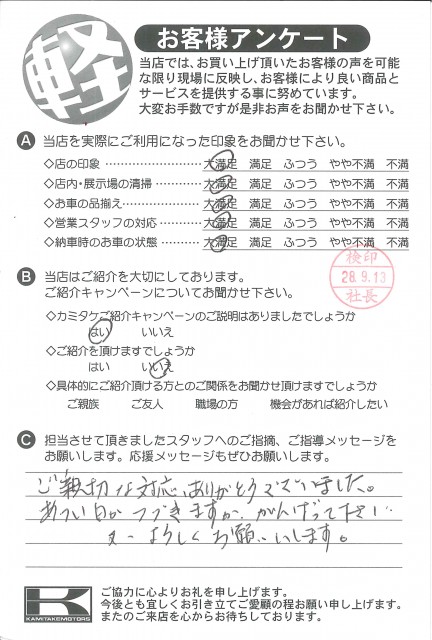 軽
お客様アンケート
当店では、お買い上げ頂いたお客様の声を可能
な限り現場に反映し、お客様により良い商品と
サービスを提供する事に努めています。
大変お手数ですが是非お声をお聞かせ下さい。
A 当店を実際にご利用になった印象をお聞かせ下さい。
◇店の印象 ………………… 大満足 満足 ふつう やや不満 不満
◇店内・展示場の清掃 ………… 大満足 満足 ふつう やや不満 不満
◇お車の品揃え ……………… 大満足 満足 ふつう やや不満 不満
◇営業スタッフの対応 ………… 大満足 満足 ふつう やや不満 不満
◇納車時のお車の状態 ………… 大満足 満足 ふつう やや不満 不満
検印
28.9.13
社長
B 当店はご紹介を大切にしております。
ご紹介キャンペーンについてお聞かせ下さい。
◇カミタケご紹介キャンペーンのご説明はありましたでしょうか
はい いいえ
◇ご紹介を頂けますでしょうか
はい いいえ
◇具体的にご紹介頂ける方とのご関係をお聞かせ頂けますでしょうか
ご親族 ご友人 職場の方 機会があれば紹介したい
C 担当させて頂きましたスタッフへのご指摘、ご指導メッセージを
お願いします。応援メッセージもぜひお願いします。
ご親切な対応、ありがとうございました。
あつい日がつづきますが、がんばって下さい
又、よろしくお願いします。
K
KAMITAKEMOTORS
ご協力に心よりお礼を申し上げます。
今後とも宜しくお引き立てご愛顧の程お願い申し上げます。
またのご来店を心からお待ちしております。